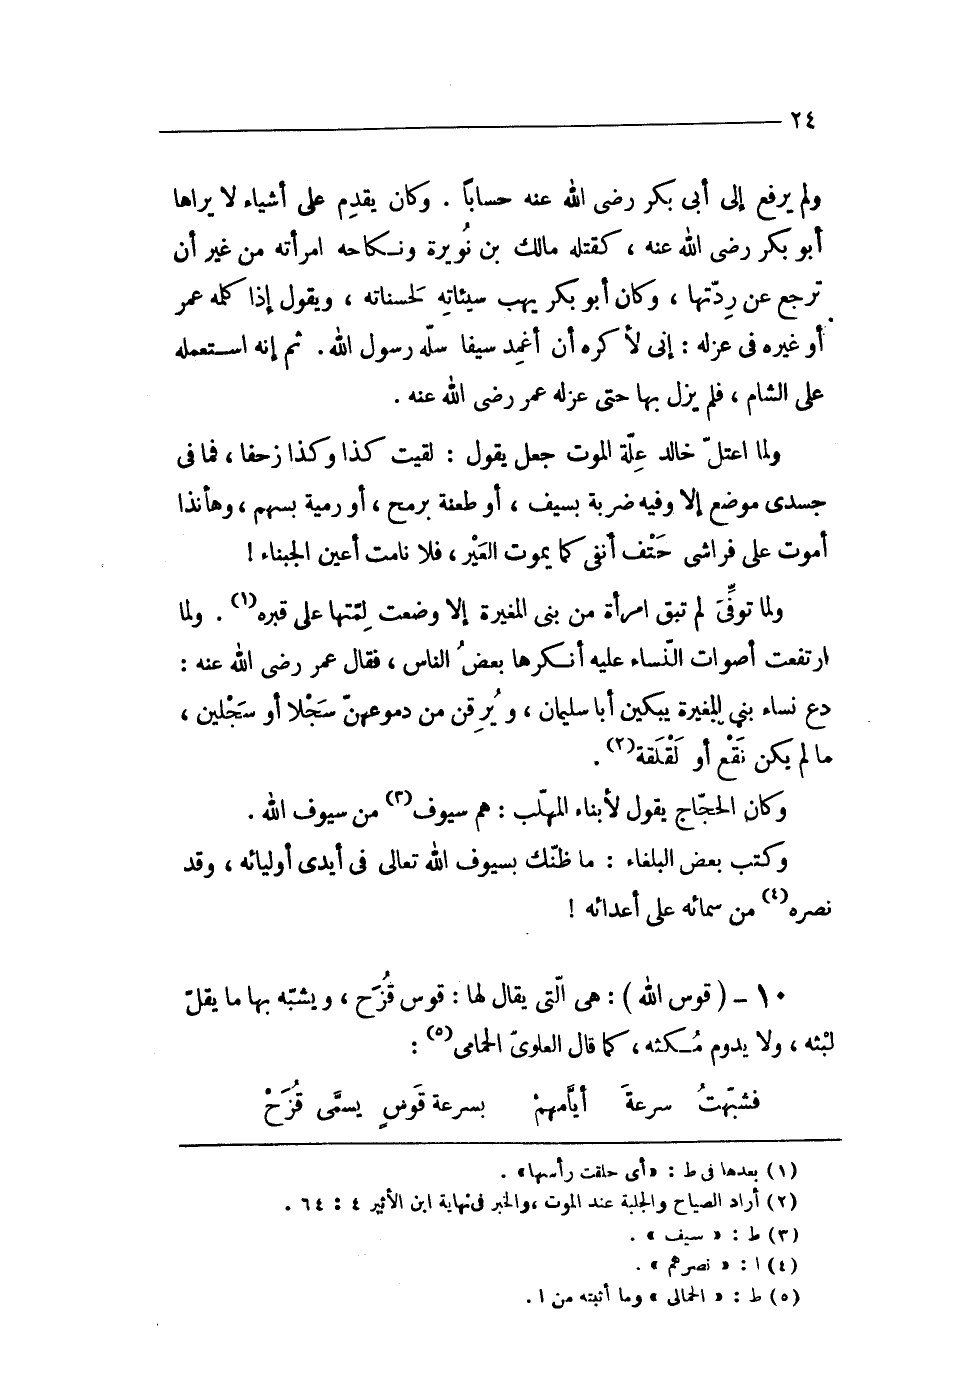 ٢٤
ولم يرفع إلى أبى بكر رضى الله عنه حساباً . وكان يقدِم على أشياء لا يراها
أبو بكر رضى الله عنه ، كقتله مالك بن نُويرة ونكاحه امرأته من غير أن
ترجع عن رِدّتها ، وكان أبو بكر يهب سيئاتِه لحسناته ، ويقول إذا كلمه عمر
أو غيره فى عزله : إنى لأكره أن أغمِد سيفا سلّه رسول الله . ثم إنه استعمله
على الشام ، فلم يزل بها حتى عزله عمر رضى الله عنه .
ولما اعتلّ خالد عِلّة الموت جعل يقول : لقيت كذا وكذا زحفا ، فما فى
جسدى موضع إلا وفيه ضربة بسيف ، أو طعنة برمح ، أو رمية بسهم ، وهأنذا
أموت على فراشى حَتْف أنفى كما يموت العَيْر ، فلا نامت أعين الجبناء !
ولما توفِّىَ لم تبق امرأة من بنى المغيرة إلا وضعت لِمّتها على قبره(١) . ولما
ارتفعت أصوات النّساء عليه أنكرها بعضُ الناس ، فقال عمر رضى الله عنه :
دع نساء بنى المغيرة يبكين أبا سليمان ، ويُرِقن من دموعهنّ سَجْلا أو سَجْلين ،
ما لم يكن نَقْع أو لَقْلَقة(٢) .
وكان الحجّاج يقول لأبناء المهلّب : هم سيوف(٣) من سيوف الله .
وكتب بعض البلغاء : ما ظنّك بسيوف الله تعالى فى أيدى أوليائه ، وقد
نصره(٤) من سمائه على أعدائه !
١٠ – ( قوس الله ) : هى الّتى يقال لها : قوس قُزَح ، ويشبّه بها ما يقلّ
لبْثه ، ولا يدوم مُكثه ، كما قال العلوىّ الحمامى(٥) :
فشبّهتُ سرعةَ أيَّامهمْ بسرعة قَوسٍ يسمَّى قُزَحْ
(١) بعدها فى ط : «أى حلقت رأسها» .
(٢) أراد الصياح والجلبة عند الموت ، والخبر فى نهاية ابن الأثير ٤ : ٦٤ .
(٣) ط : « سيف » .
(٤) ا : « نصرهم » .
(٥) ط : « الحمالى » وما أثبته من ا .